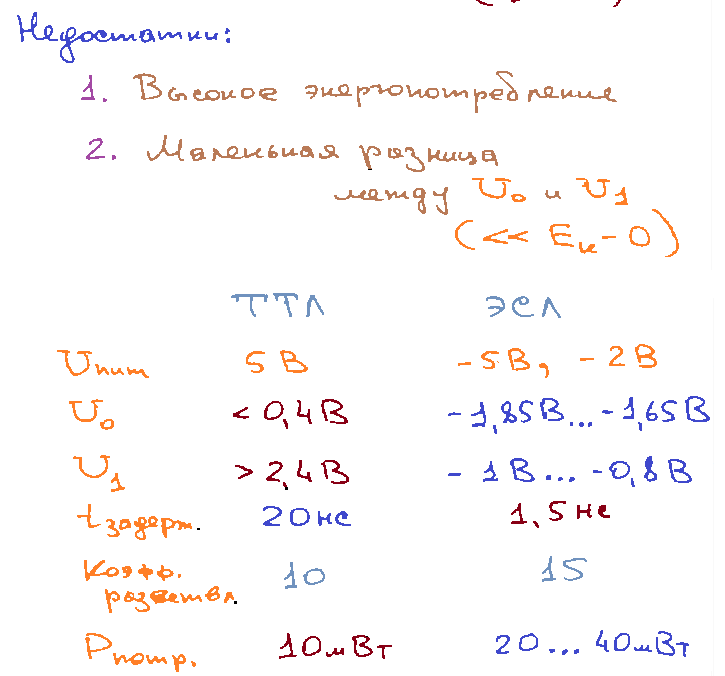 Недостатки:
1. Высокое энергопотребление
2. Маленькая разница
между U₀ и U₁
(<< Eк - 0)
ТТЛ ЭСЛ
Uпит 5 В -5В, -2В
U₀ < 0,4В -1,85В...-1,65В
U₁ > 2,4В -1В...-0,8В
tзадерж. 20нс 1,5нс
Коэфф. 10 15
разветвл.
Pпотр. 10мВт 20...40мВт